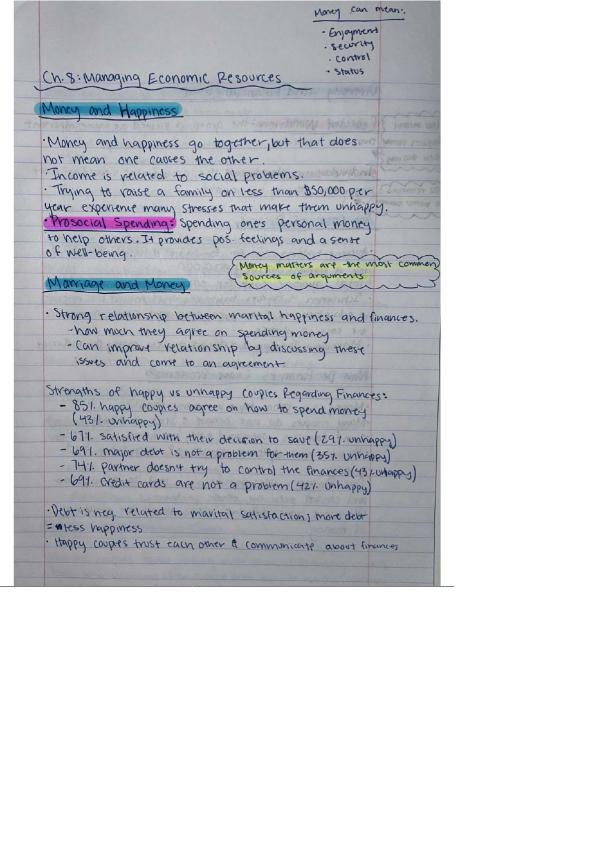 Money can mean:
· Enjoyment
· Security
· Control
· Status
Ch. 8: Managing Economic Resources
Money and Happiness
· Money and happiness go together, but that does
not mean one causes the other.
· Income is related to social problems.
· Trying to raise a family on less than $50,000 per
year experience many stresses that make them unhappy.
· Prosocial Spending: Spending one's personal money
to help others. It provides pos. feelings and a sense
of well-being.
Money matters are the most common
sources of arguments
Marriage and Money
· Strong relationship between marital happiness and finances.
- how much they agree on spending money
- Can improve relationship by discussing these
issues and come to an agreement
Strengths of happy vs unhappy couples Regarding Finances:
- 85% happy couples agree on how to spend money
(43% unhappy)
- 67% satisfied with their decision to save (29% unhappy)
- 69% major debt is not a problem for them (35% unhappy)
- 74% partner doesn't try to control the finances (43% unhappy)
- 69% credit cards are not a problem (42% unhappy)
· Debt is neg. related to marital satisfaction; more debt
= less happiness
· Happy couples trust each other & communicate about finances